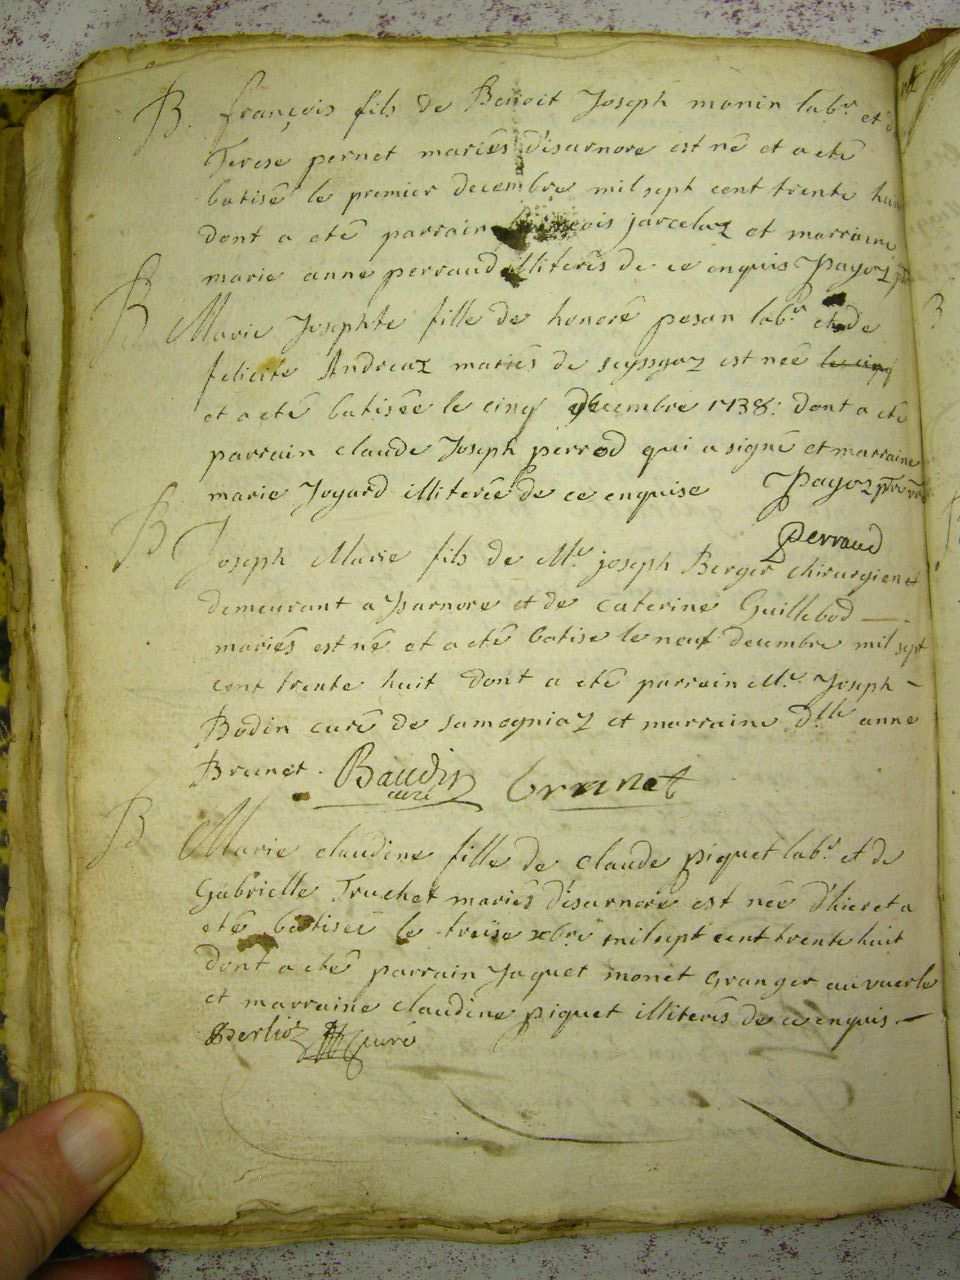 B. françois fils de Benoit Joseph monin labr et de
Terese pernet mariés d'isarnore est né et a eté
batisé le premier decembre mil sept cent trente huit
dont a eté parrain françois jarcelaz et marraine
marie anne perraud illiterés de ce enquis Payoz
B Marie Josephte fille de honoré pesan labr et de
felicité Andreaz mariés de seyssyoz est née le cinq
et a eté batisée le cinq decembre 1738: dont a eté
parrain claude Joseph perrod qui a signé et marraine
marie Joyard illiterée de ce enquise Payoz
perraud
B Joseph Marie fils de Mr. joseph Berger chirurgien et
demeurant a Isarnore et de caterine Guillebod —
mariés est né et a eté batisé le neuf decembre mil sept
cent trente huit dont a eté parrain Mr. Joseph -
Bodin curé de samogniaz et marraine dlle anne
Brunet. Baudin curé brunet
B Marie claudine fille de claude piquet labr. et de
Gabrielle Truchet mariés d'isarnore est née d'hier et a
eté batisée le treise xbre mil sept cent trente huit
dont a eté parrain Jaquet monet Granger au
et marraine claudine piquet illiterés de ce enquis. —
Berlioz curé